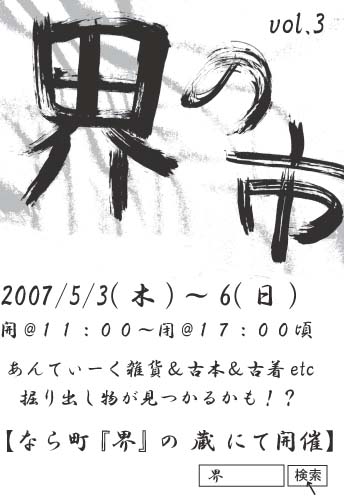 vol.3
界の市
2007/5/3(木)～6(日)
開＠１１：００～閉＠１７：００頃
あんてぃーく雑貨＆古本＆古着etc
掘り出し物が見つかるかも！？
【なら町『界』の蔵にて開催】
界 検索